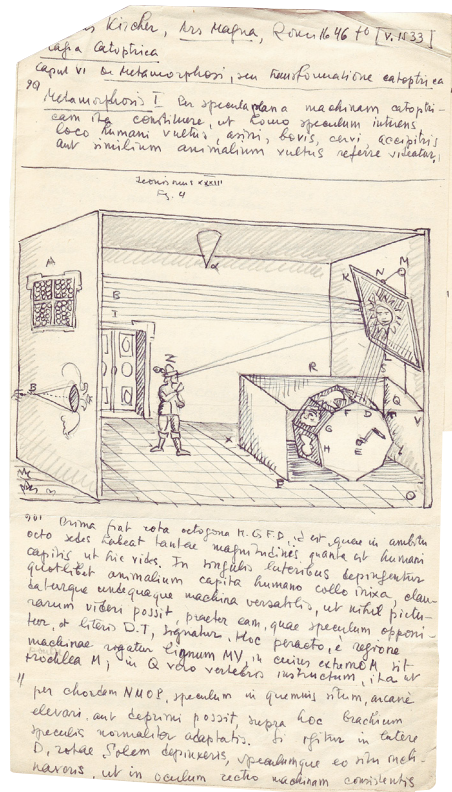 Kircher, Ars Magna, Roma 1646 fo [v. 1533]
Magia Catoptrica
Caput VI De Metamorphosi, seu Transformatione catoptrica
Metamorphosis I Per specula plana machinam catoptri-
cam ita constituere, ut homo speculum intuens
loco humani vultus, asini, bovis, cervi accipitris
aut similium animalium vultus referre videatur,
Iconismus XXIII
Fig. 4
A
B
I
B
Z
α
K
N
M
L
S
R
Q
V
F
D
G
H
X
E
O
901 Prima fiat rota octogona H.G.F.D., id est, quae in ambitu
octo sedes habeat tantae magnitudines quanta est humani
capitis ut hic vides. In singulis lateribus depingentur
quotlibet animalium capita humano collo inixa, clau-
daturque undequaque machina versatilis, ut nihil pictu-
rarum videri possit, praeter eam, quae speculum opponi-
tur, et literis D.T, signatur. Hoc peracto, e regione
machinae rogatur lignum MV, in cuius extremo M sit
trochlea M; in Q vero vertebris instructum, ita ut
per chordam NMOP, speculum in quemvis situm, arcane
elevari, aut deprimi possit, supra hoc brachium
speculis normaliter adaptatis. Si igitur in latere
D, rotae, Solem depinxeris, speculumque eo situ incli-
naveris, ut in oculum recto machinam consistentis